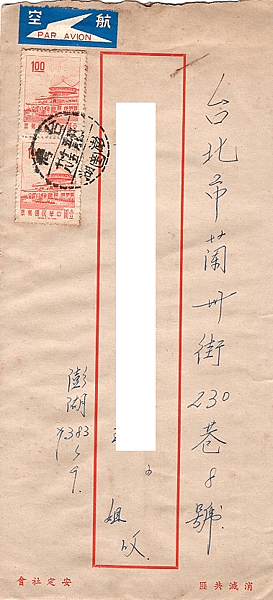 航空
PAR AVION
1.00
中華民國郵票
中華民國郵票
台北市蘭州街230巷8號
姐
收
澎湖
7383
5/9.
消滅共匪
安定社會